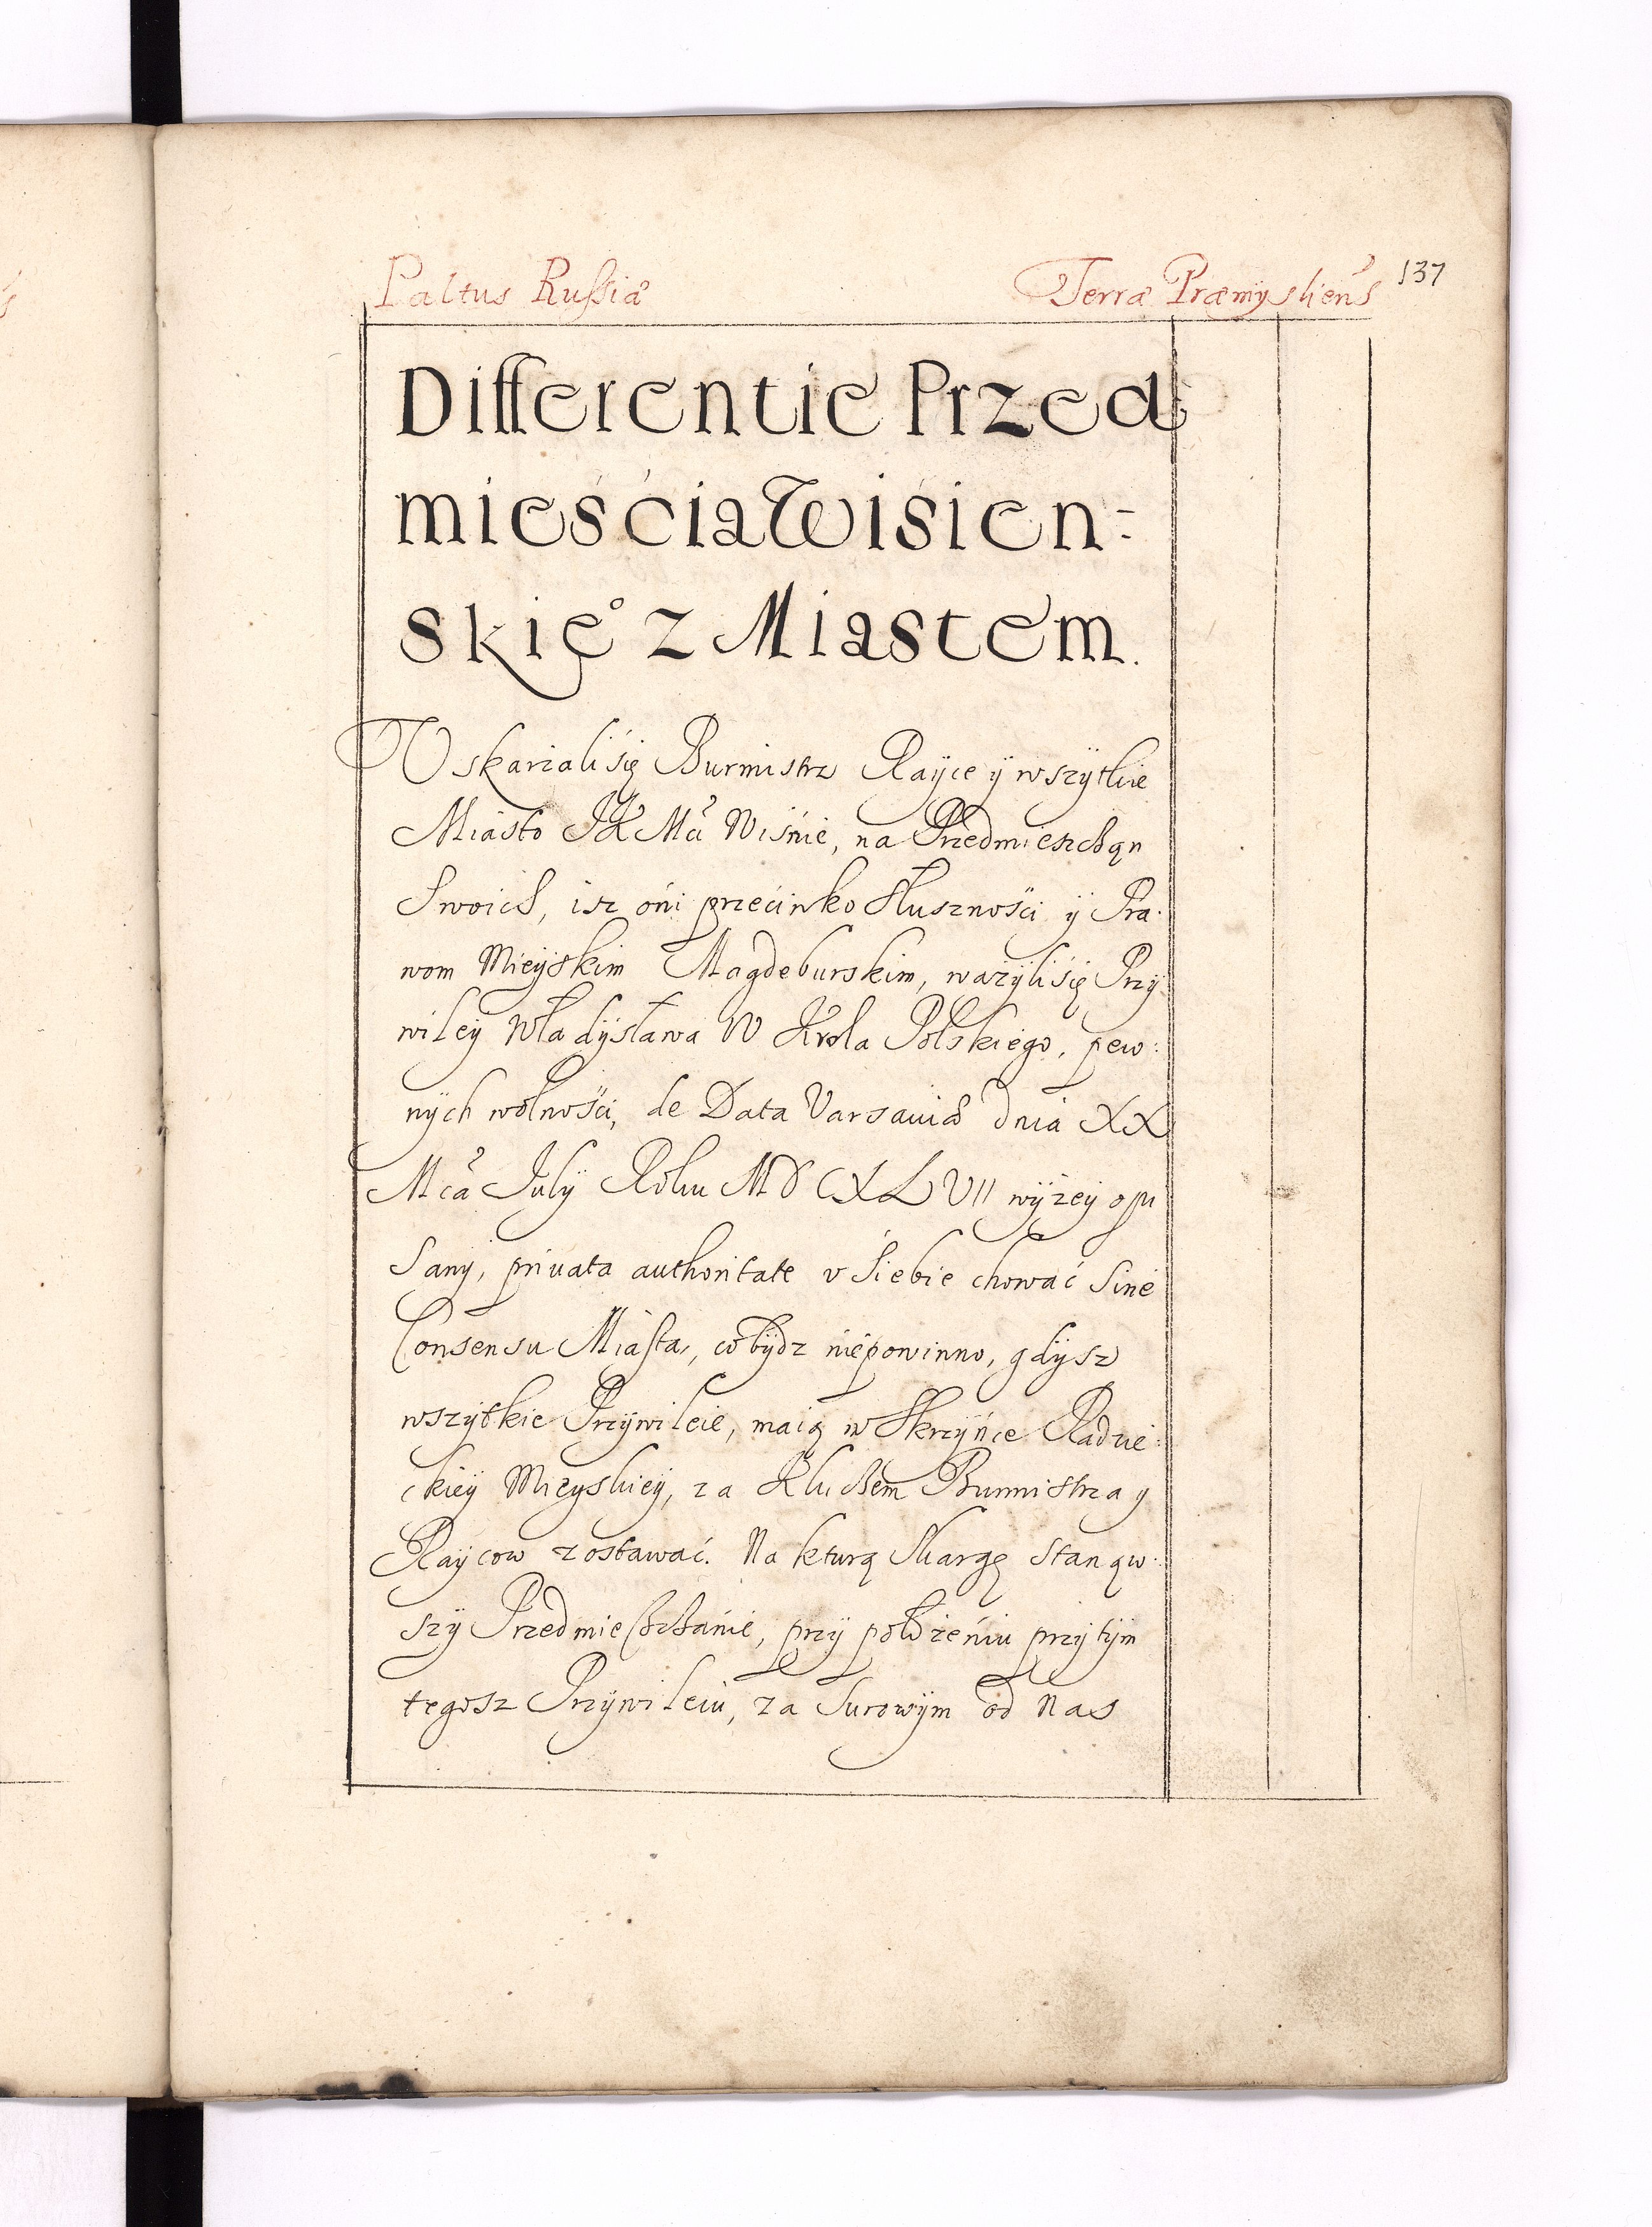 Paltus Russiæ Terræ Præmysliens̃ 137
Differentie Przed
mieścia Wisien-
skieº z Miastem.
Uskarzali się Burmistrz Rayce ÿ wszÿtkie
Miasto JK Mći Wiśnie, na Przedmieszchąn
Swoich, isz oni przećiwko Słusznośći ÿ Pra-
wom Mieÿskim Magdeburskim, ważÿli się Przÿ
wileÿ Władÿsława IV Krola Polskiego, pew:
nÿch wolnośći, de Data Varsaviæ dnia XX
Mcã Julÿ Roku MDCXLVII wÿżeÿ opi
sanÿ, privata authoritate v Siebie chować Sine
Consensu Miasta, co bÿdz niepowinno, gdÿsz
wszÿtkie Przÿwileie, maią w Skrzÿńce Radzie:
ckieÿ Mieÿskieÿ, za Kluczem Burmistrza y
Raÿcow zostawać. Na kturą Skargę Stanąw:
szÿ Przedmieszczanie, przÿ położeniu przÿ tÿm
tegosz Przÿwileiu, za Surowÿm od Nas